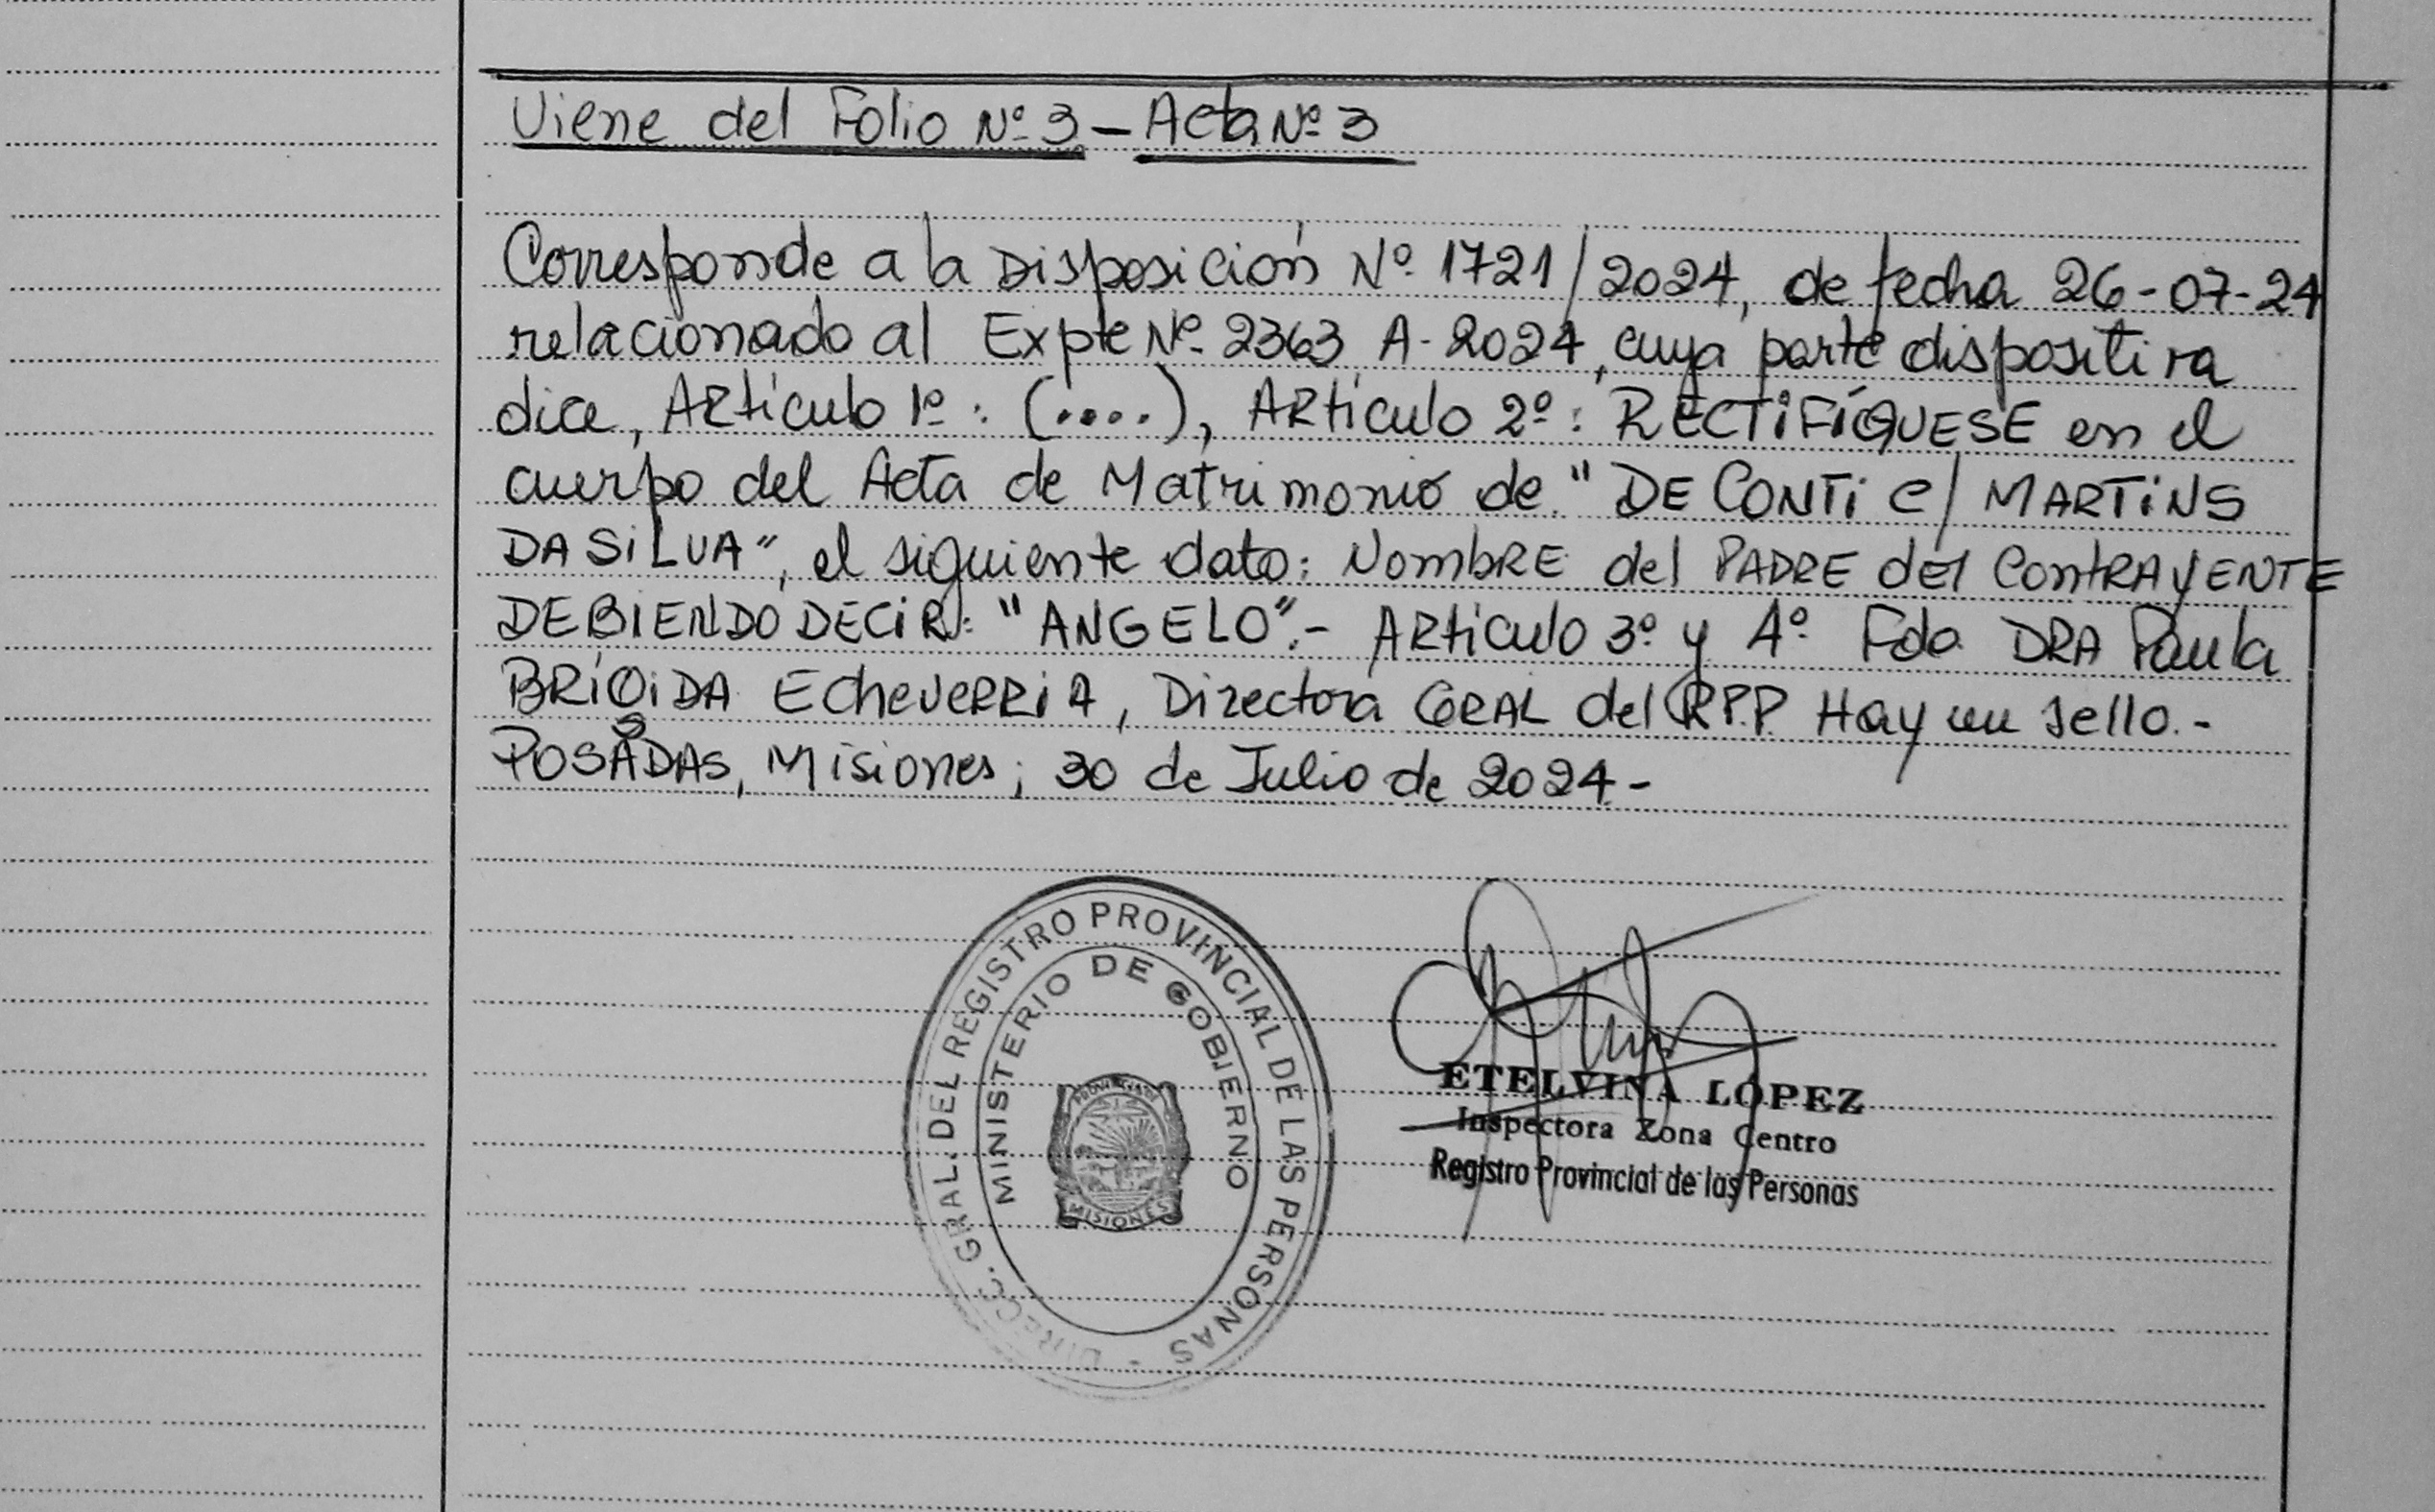 Viene del Folio Nº 3 – Acta Nº 3
Corresponde a la Disposición Nº 1721/2024, de fecha 26-07-24
relacionado al Expte Nº 2363 A-2024, cuya parte dispositiva
dice, Artículo 1º: (....), Artículo 2º: RECTIFÍQUESE en el
cuerpo del Acta de Matrimonio de "DE CONTI c/ MARTINS
DA SILVA", el siguiente dato: NOMBRE del PADRE del CONTRAYENTE
DEBIENDO DECIR: "ANGELO".- Artículo 3º y 4º Fdo DRA Paula
BRÍGIDA EcheverRiA, Directora GRAL del RPP. Hay un sello.-
POSADAS, Misiones; 30 de Julio de 2024.-
DIRECC. GRAL. DEL REGISTRO PROVINCIAL DE LAS PERSONAS -
MINISTERIO DE GOBIERNO
PROVINCIA DE
MISIONES
ETELVINA LÓPEZ
Inspectora Zona Centro
Registro Provincial de las Personas